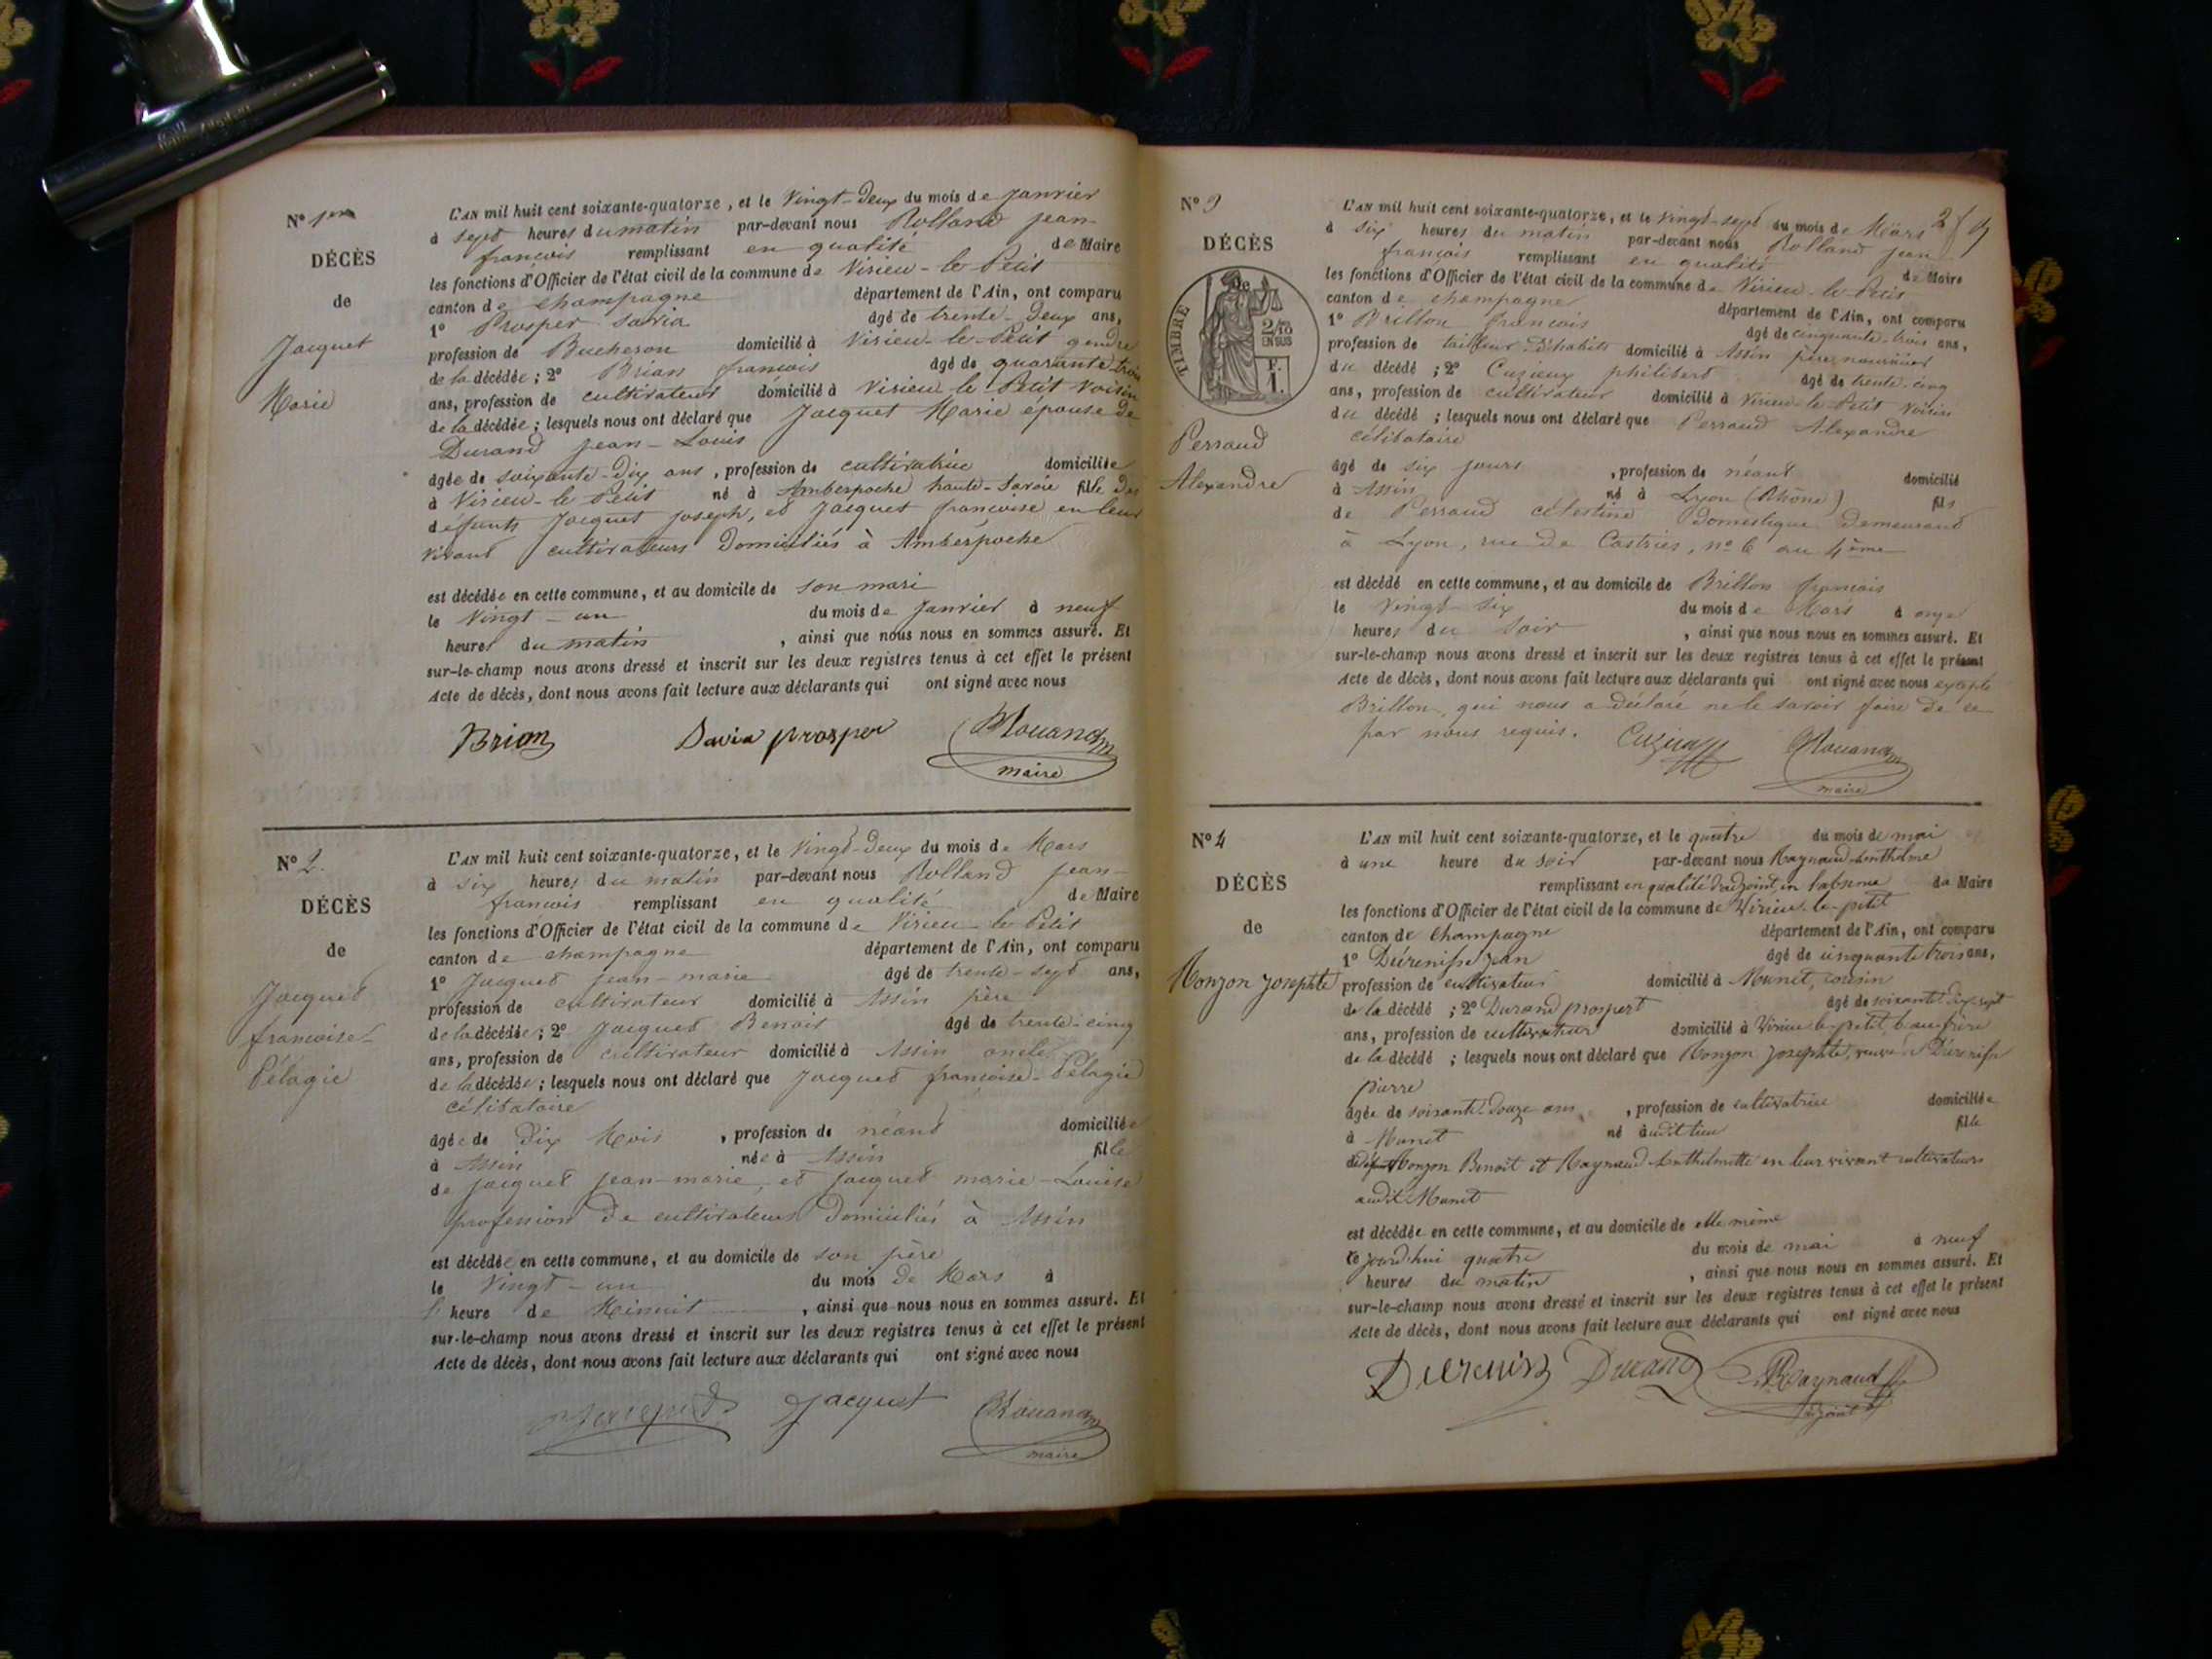 N° 1er
DÉCÈS
de
Jacquet
Marie
L'AN mil huit cent soixante-quatorze, et le vingt-deux du mois de Janvier
à sept heures du matin par-devant nous Rolland jean-
françois remplissant en qualité de Maire
les fonctions d'Officier de l'état civil de la commune de Virieu-le-Petit
canton de champagne département de l'Ain, ont comparu
1° Prosper Savia âgé de trente-deux ans,
profession de Bucheron domicilié à Virieu-le-Petit gendre
de la décédée; 2° Brian françois âgé de quarante-trois
ans, profession de cultivateur domicilié à Virieu-le-Petit voisin
de la décédée; lesquels nous ont déclaré que Jacquet Marie épouse de
Durand jean-Louis
âgée de soixante-dix ans, profession de cultivatrice domiciliée
à Virieu-le-Petit né à Amberpoche haute-Savoie fille des
défunts Jacquet joseph, et Jacquet françoise en leur
vivant cultivateurs domiciliés à Amberpoche
est décédée en cette commune, et au domicile de son mari
le vingt-un du mois de Janvier à neuf
heures du matin, ainsi que nous nous en sommes assuré. Et
sur-le-champ nous avons dressé et inscrit sur les deux registres tenus à cet effet le présent
Acte de décès, dont nous avons fait lecture aux déclarants qui ont signé avec nous
Brian Savia prosper
maire
N° 2.
DÉCÈS
de
Jacquet
françoise-
Pélagie
L'AN mil huit cent soixante-quatorze, et le vingt-deux du mois de Mars
à six heures du matin par-devant nous Rolland jean-
françois remplissant en qualité de Maire
les fonctions d'Officier de l'état civil de la commune de Virieu-le-Petit
canton de champagne département de l'Ain, ont comparu
1° Jacquet jean-marie âgé de trente-sept ans,
profession de cultivateur domicilié à Assin père
de la décédée; 2° Jacquet Benoit âgé de trente-cinq
ans, profession de cultivateur domicilié à Assin oncle
de la décédée; lesquels nous ont déclaré que Jacquet françoise-Pélagie
célibataire
âgée de dix Mois, profession de néant domiciliée
à Assin née à Assin fille
de Jacquet jean-marie, et Jacquet marie-Louise
profession de cultivateurs domiciliés à Assin
est décédée en cette commune, et au domicile de son père
le vingt-un du mois de Mars à
heure de Minuit, ainsi que nous nous en sommes assuré. Et
sur-le-champ nous avons dressé et inscrit sur les deux registres tenus à cet effet le présent
Acte de décès, dont nous avons fait lecture aux déclarants qui ont signé avec nous
Jacquet
maire
N° 3
DÉCÈS
de
TIMBRE
2/10
EN SUS
F.
1.
Perraud
Alexandre
L'AN mil huit cent soixante-quatorze, et le vingt-sept du mois de Mars
à six heures du matin par-devant nous Rolland jean
françois remplissant en qualité de Maire
les fonctions d'Officier de l'état civil de la commune de Virieu-le-Petit
canton de champagne département de l'Ain, ont comparu
1° Brillon françois âgé de cinquante-trois ans,
profession de tailleur d'habits domicilié à Assin père nourricier
du décédé; 2° Cuzeux philibert âgé de trente-cinq
ans, profession de cultivateur domicilié à Virieu-le-Petit voisin
du décédé; lesquels nous ont déclaré que Perraud Alexandre
célibataire
âgé de six jours, profession de néant domicilié
à Assin né à Lyon (Rhône) fils
de Perraud célestine domestique demeurant
à Lyon, rue de Castries, n° 6 au 4ème
est décédé en cette commune, et au domicile de Brillon françois
le vingt-six du mois de Mars à onze
heures du soir, ainsi que nous nous en sommes assuré. Et
sur-le-champ nous avons dressé et inscrit sur les deux registres tenus à cet effet le présent
Acte de décès, dont nous avons fait lecture aux déclarants qui ont signé avec nous excepté
Brillon, qui nous a déclaré ne le savoir faire de ce
par nous requis.
maire
N° 4
DÉCÈS
de
Monzon Josephte
L'AN mil huit cent soixante-quatorze, et le quatre du mois de mai
à une heure du soir par-devant nous Raynaud Anthelme
remplissant en qualité d'adjoint, en l'absence du Maire
les fonctions d'Officier de l'état civil de la commune de Virieu-le-petit
canton de Champagne département de l'Ain, ont comparu
1° Jean âgé de cinquante trois ans,
profession de cultivateur domicilié à Munet, cousin
de la décédé; 2° Durand prospert âgé de soixante-dix-sept
ans, profession de cultivateur domicilié à Virieu-le-petit, beau frère
de la décédé; lesquels nous ont déclaré que Monzon Josephte, veuve
pierre
âgée de soixante-douze ans, profession de cultivatrice domiciliée
à Munet né audit lieu fille
Monzon Benoit et Raynaud Anthelmette en leur vivant cultivateurs
audit Munet
est décédée en cette commune, et au domicile de elle même
ce jourd'hui quatre du mois de mai à neuf
heures du matin, ainsi que nous nous en sommes assuré. Et
sur-le-champ nous avons dressé et inscrit sur les deux registres tenus à cet effet le présent
Acte de décès, dont nous avons fait lecture aux déclarants qui ont signé avec nous
Durand Raynaud
adjoint